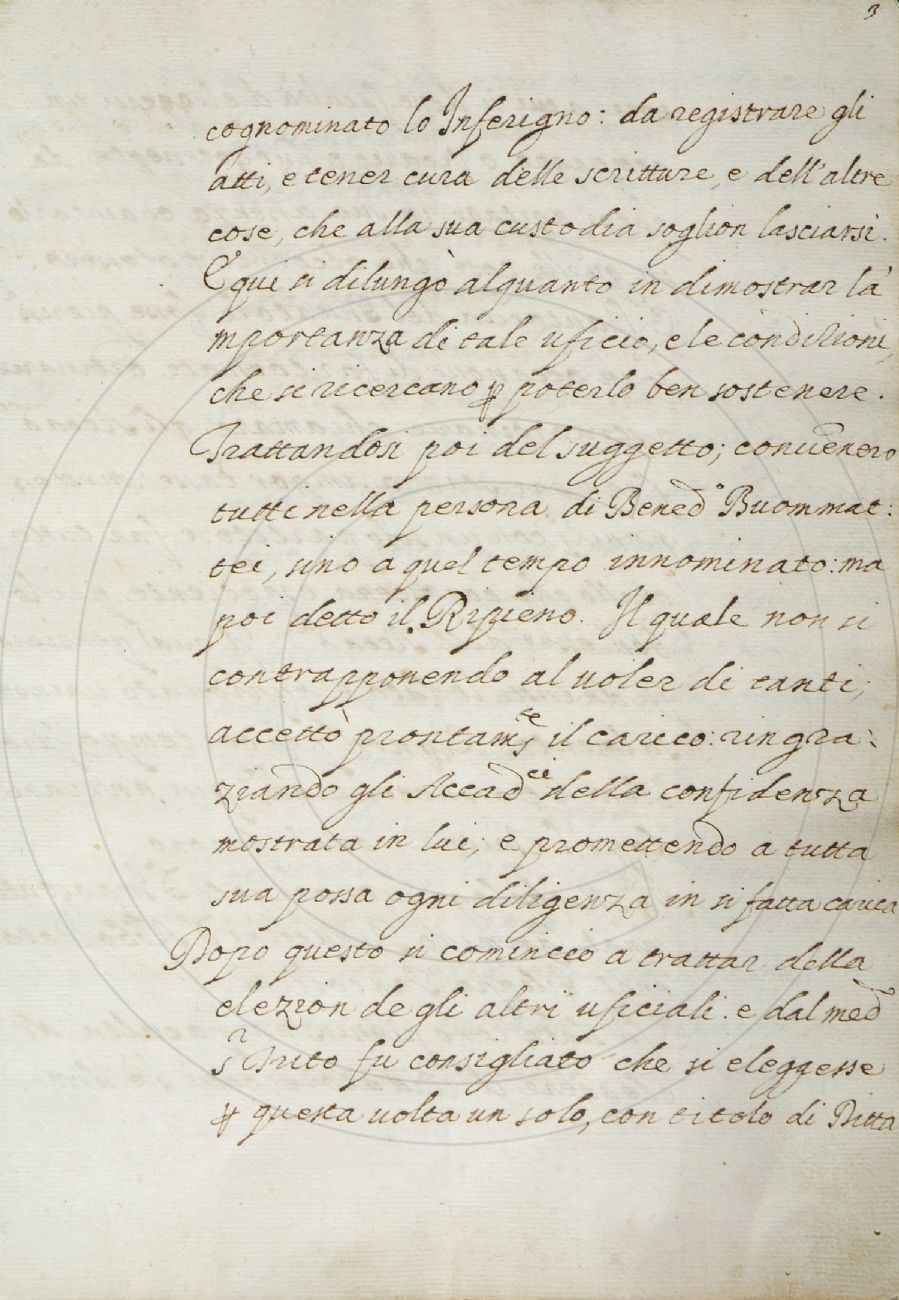 3
cognominato lo Inferigno: da registrare gli
atti, e tener cura delle scritture, e dell'altre
cose, che alla sua custodia soglion lasciarsi.
E qui si dilungò alquanto in dimostrar la'
mportanza di tale uficio, e le condizioni,
che si ricercano ꝑ poterlo ben sostenere.
Trattandosi poi del suggetto; convennero
tutti nella persona di Bened.º Buommat:
tei, sino a quel tempo innominato: ma
poi detto il Ripieno. Il quale non si
contrapponendo al voler di tanti,
accettò prontam.te il carico: ringra:
ziando gli Accad.ci della confidenza
mostrata in lui; e promettendo a tutta
sua possa ogni diligenza in si fatta carica
Dopo questo si cominciò a trattar della
elezion de gli altri uficiali. e dal med
s.r Trito fu consigliato che si eleggesse
ꝑ questa volta un solo, con titolo di Ditta